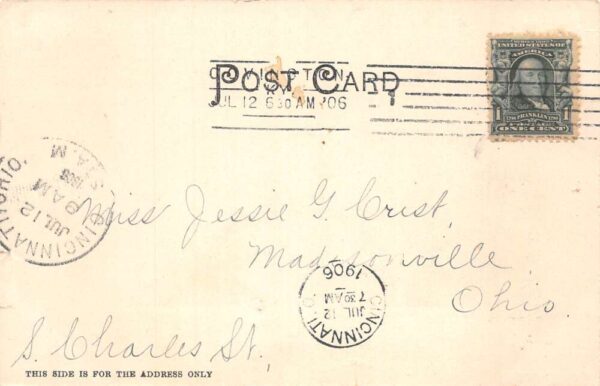 POST CARD
COVINGTON
KY.
JUL 12 630 AM '06
UNITED STATES OF
1 FRANKLIN 1
ONE CENT
CINCINNATI, OHIO.
JUL 12
9 AM
1906
Miss Jessie G. Crist,
Madisonville,
Ohio.
CINCINNATI, O.
JUL 12
730 AM
1906
S. Charles St,
THIS SIDE IS FOR THE ADDRESS ONLY